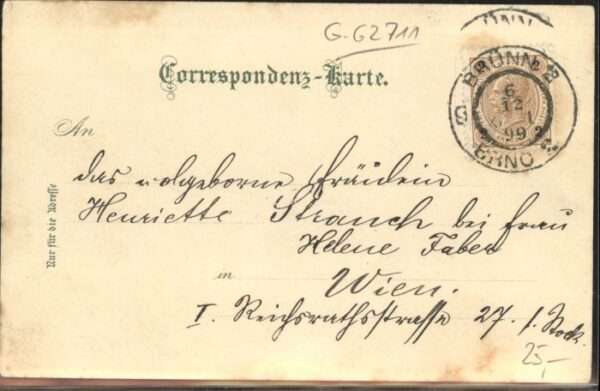 G-G2711
BRÜNN
6
12
99
BRNO
Correspondenz-Karte.
An
das wolgeborne Fräulein
Henriette Strauch bei Frau
Helene Faber
in Wien.
I. Reichsrathsstrasse 27. 1. Stock.
Nur für die Adresse
25,-